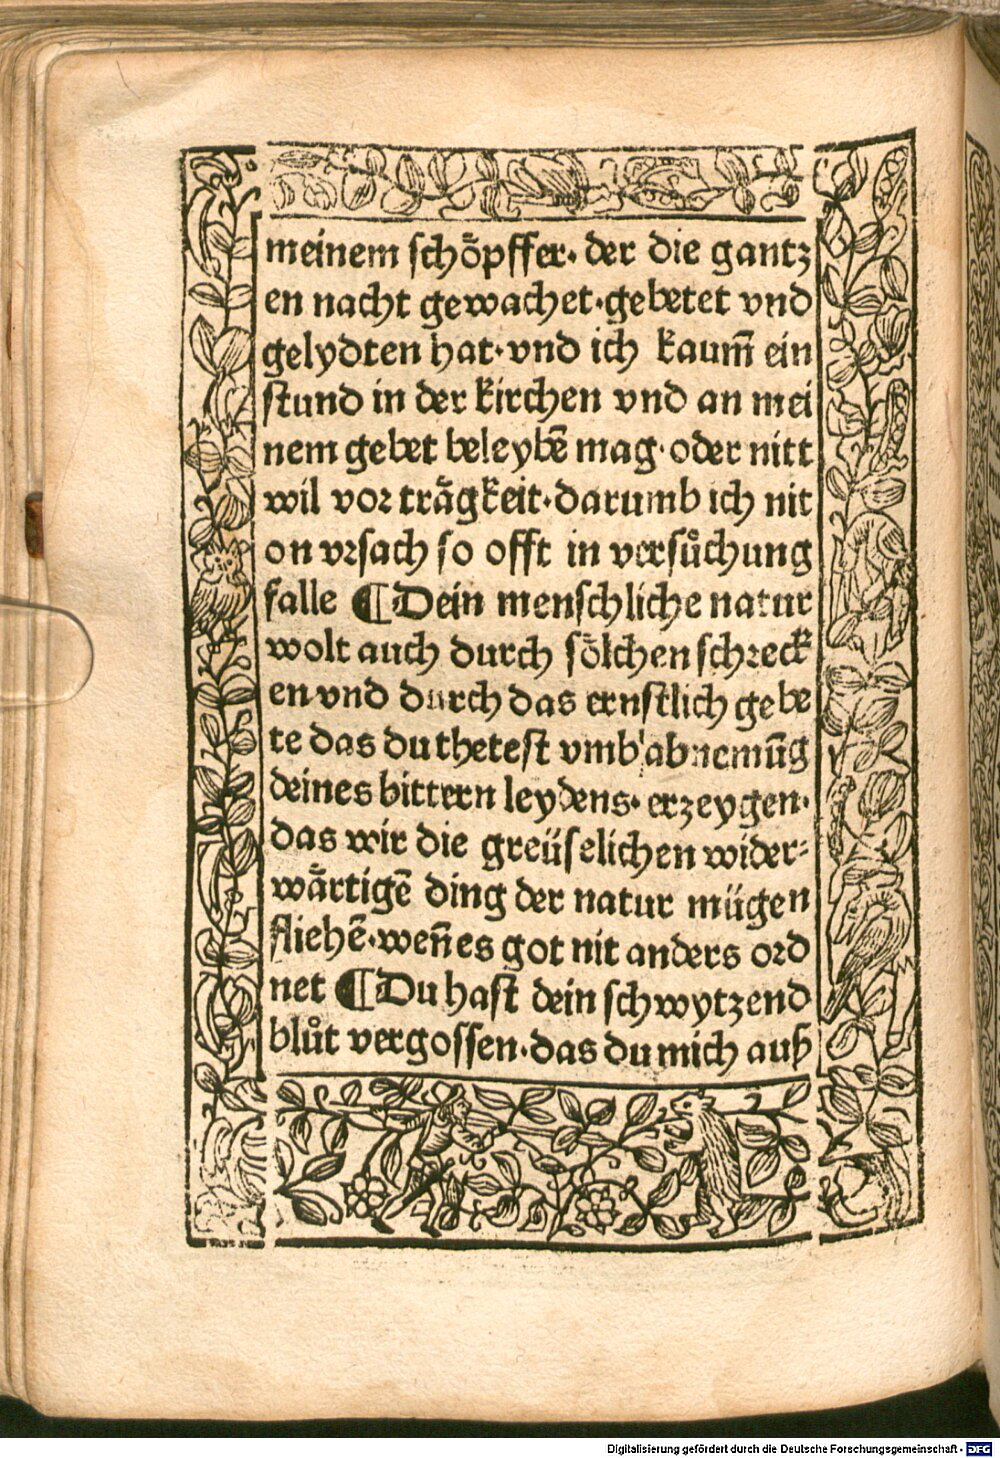 meinem schoͤpffer· der die gantz
en nacht gewachet·gebetet vnd
gelydten hat·vnd ich kaum̃ ein
stund in der kirchen vnd an mei
nem gebet beleybẽ mag·oder nitt
wil vor traͤgkeit·darumb ich nit
on vrsach so offt in versuͦchung
falle ¶Dein menschliche natur
wolt auch durch soͤlchen schreck
en vnd durch das ernstlich gebe
te das du thetest vmb abnemũg
deines bittern leydens· erzeygen·
das wir die greüselichen wider⸗
waͤrtigẽ ding der natur mügen
fliehẽ·weñ es got nit anders ord
net ¶Du hast dein schwytzend
bluͦt vergossen·das du mich auß
Digitalisierung gefördert durch die Deutsche Forschungsgemeinschaft - DFG